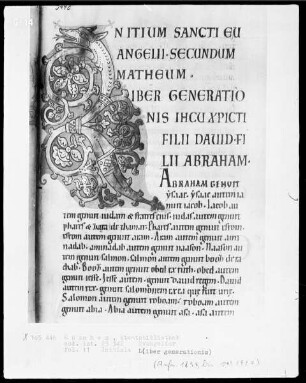 NITIUM SANCTI EU
ANGELII SECUNDUM
MATHEUM.
IBER GENERATIO
NIS IHCU XPICTI
FILII DAUID FI
LII ABRAHAM.
ABRAHAM GENUIT
ysaac. ysaac autem ia
nuit iacob. Iacob au
tem genuit iudam & fratres eius. iudas autem genuit
phares & zara de thamar. Phares autem genuit esrom.
esrom autem genuit aram. Aram autem genuit ami
nadab. aminadab autem genuit naason. Naason au
tem genuit salmon. salmon autem genuit booz de ra
chab. Booz autem genuit obed ex ruth. obed autem
genuit iesse. Iesse autem genuit dauid regem. Dauid
autem rex genuit salomonem ex ea que fuit urie.
Salomon autem genuit roboam. roboam autem
genuit abia. Abia autem genuit asa.
fol. 11 Initiale L(iber generationis)